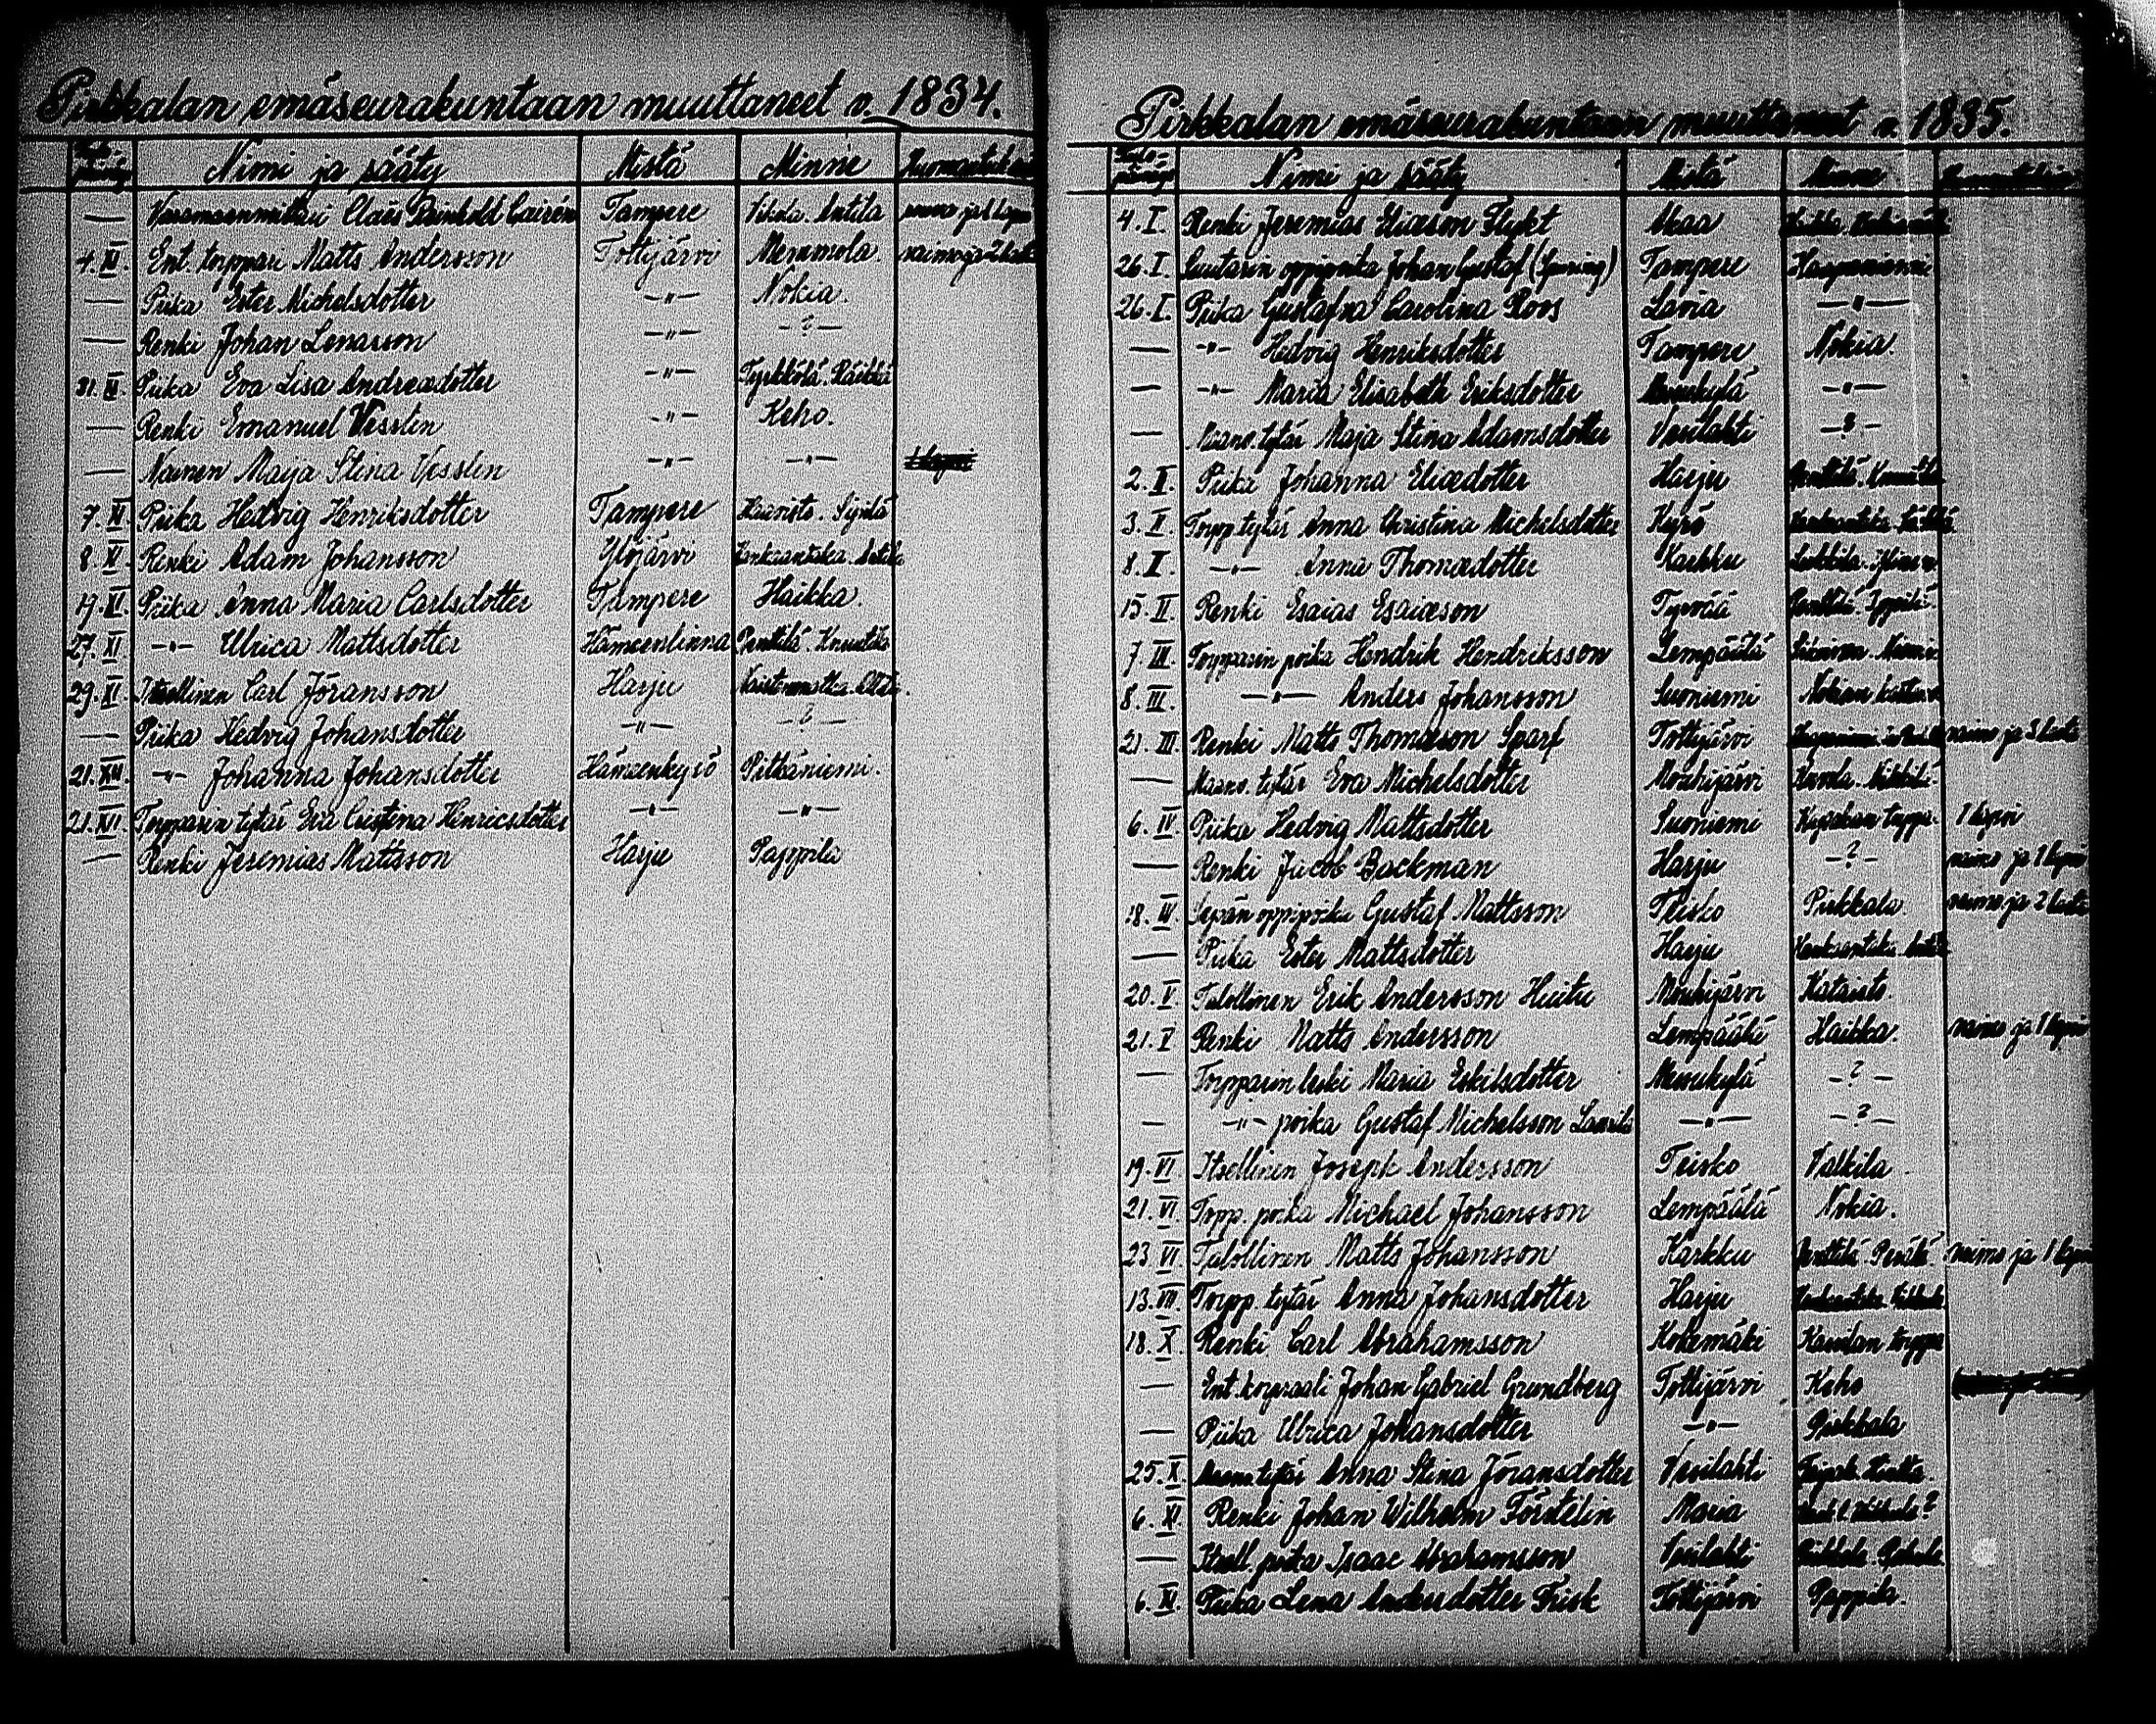 Pirkkalan emäseurakuntaan muuttaneet v. 1834.
Nimi ja sääty Mistä Minne
— Claës Reinhold Cairén Tampere Antila
4. XI. Ent. torppari Matts Andersson Tottijärvi Memmola. vaimo ja 2 lasta
— Piika Ester Michelsdotter —„— Nokia.
— Renki Johan Lenasson —„— —?—
Piika Eva Lisa Andreædotter —„— Tyrkkölä. Räikkä
— Renki Emanuel Vesslin —„— Keho.
— Nainen Maija Stina Vesslin —„— —„—
7. XI. Piika Hedvig Henriksdotter Tampere Haavisto. Sipilä
8. XI. Renki Adam Johansson Ylöjärvi
19. XI. Piika Anna Maria Carlsdotter Tampere Haikka.
27. XI —„— Ulrica Mattsdotter Hämeenlinna Penttilä. Knuutila
29. XI. Itsellinen Carl Jöransson Harju
— Piika Hedvig Johansdotter —„— —?—
21. XII. —„— Johanna Johansdotter Hämeenkyrö Pitkäniemi.
21. XII. Torpparin tytär Eva Cristina Henricsdotter —„— —„—
— Renki Jeremias Mattsson Harju Pappila
Pirkkalan emäseurakuntaan muuttaneet v. 1835.
Nimi ja sääty Mistä Minne
4. I. Renki Jeremias Eliæson Flykt Akaa
26. I. Suutarin Johan Gustaf (Spring) Tampere Haapaniemi
26. I. Piika Gustafva Carolina Roos Lavia —„—
— —„— Hedvig Henriksdotter Tampere Nokia.
— —„— Maria Elisabeth Eriksdotter Messukylä —„—
— tytär Maja Stina Adamsdotter Vesilahti —?—
2. Piika Johanna Eliædotter Harju Penttilä. Knuutila
3. II. Torpp. tytär Anna Christina Michelsdotter Kyrö
8. —„— Anna Thomædotter Karkku
15. II. Renki Esaias Esaiæson Tyrvää Penttilä.
7. III. Torpparin poika Hendrik Hendriksson Lempäälä
8. III. —„— Anders Johansson Suoniemi Nokian
21. III. Renki Matts Thomasson Sparf Tottijärvi vaimo ja 3 lasta
— tytär Eva Michelsdotter Mouhijärvi
6. IV. Piika Hedvig Mattsdotter Suoniemi torppa. 1 lapsi
— Renki Jacob Backman Harju —?— vaimo ja 1 lapsi
18. IV. Sepän oppipoika Gustaf Mattsson Teisko Pirkkala. vaimo ja 2 lasta
— Piika Ester Mattsdotter Harju
20. V. Talollinen Erik Andersson Huitu Mouhijärvi Kataisto.
21. V Renki Matts Andersson Lempäälä Haikka. vaimo ja 1 lapsi
— Torpparin leski Maria Eskilsdotter Messukylä —?—
— —„— poika Gustaf Michelsson Laurila —„— —?—
19. VI Itsellinen Joseph Andersson Teisko Valkila.
21. VI. Torpp. poika Michael Johansson Lempäälä Nokia.
23. VI Talollinen Matts Johansson Karkku Penttilä. vaimo ja 1 lapsi
13. VII. Torpp. tytär Anna Johansdotter Harju
18. X. Renki Carl Abrahamsson Kokemäki torppa
— Ent. korpraali Johan Gabriel Grundberg Tottijärvi Keho
— Piika Ulrica Johansdotter —„— Pirkkala
25. X. tytär Anna Stina Jöransdotter Vesilahti
6. XI. Renki Johan Wilhelm Förstelin Maria
— Itsell. poika Isaac Abrahamsson Vesilahti Pirkkala.
6. XI. Piika Lena Andersdotter Frisk Tottijärvi Pappila.